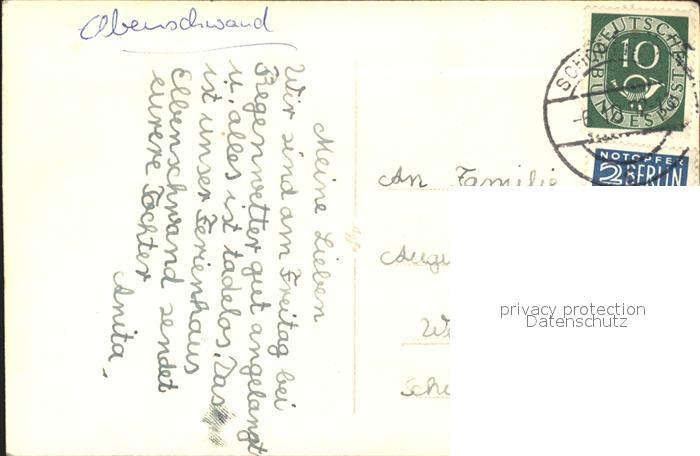 Obenschwand
Meine Lieben
Wir sind am Freitag bei
Regenwetter gut angelangt
u. alles ist tadelos. Das
ist unser Ferienhaus
Elbenschwand sendet
eurere Tochter
Anita.
An Familie
DEUTSCHE
BUNDESPOST
10
NOTOPFER
2 BERLIN
privacy protection
Datenschutz